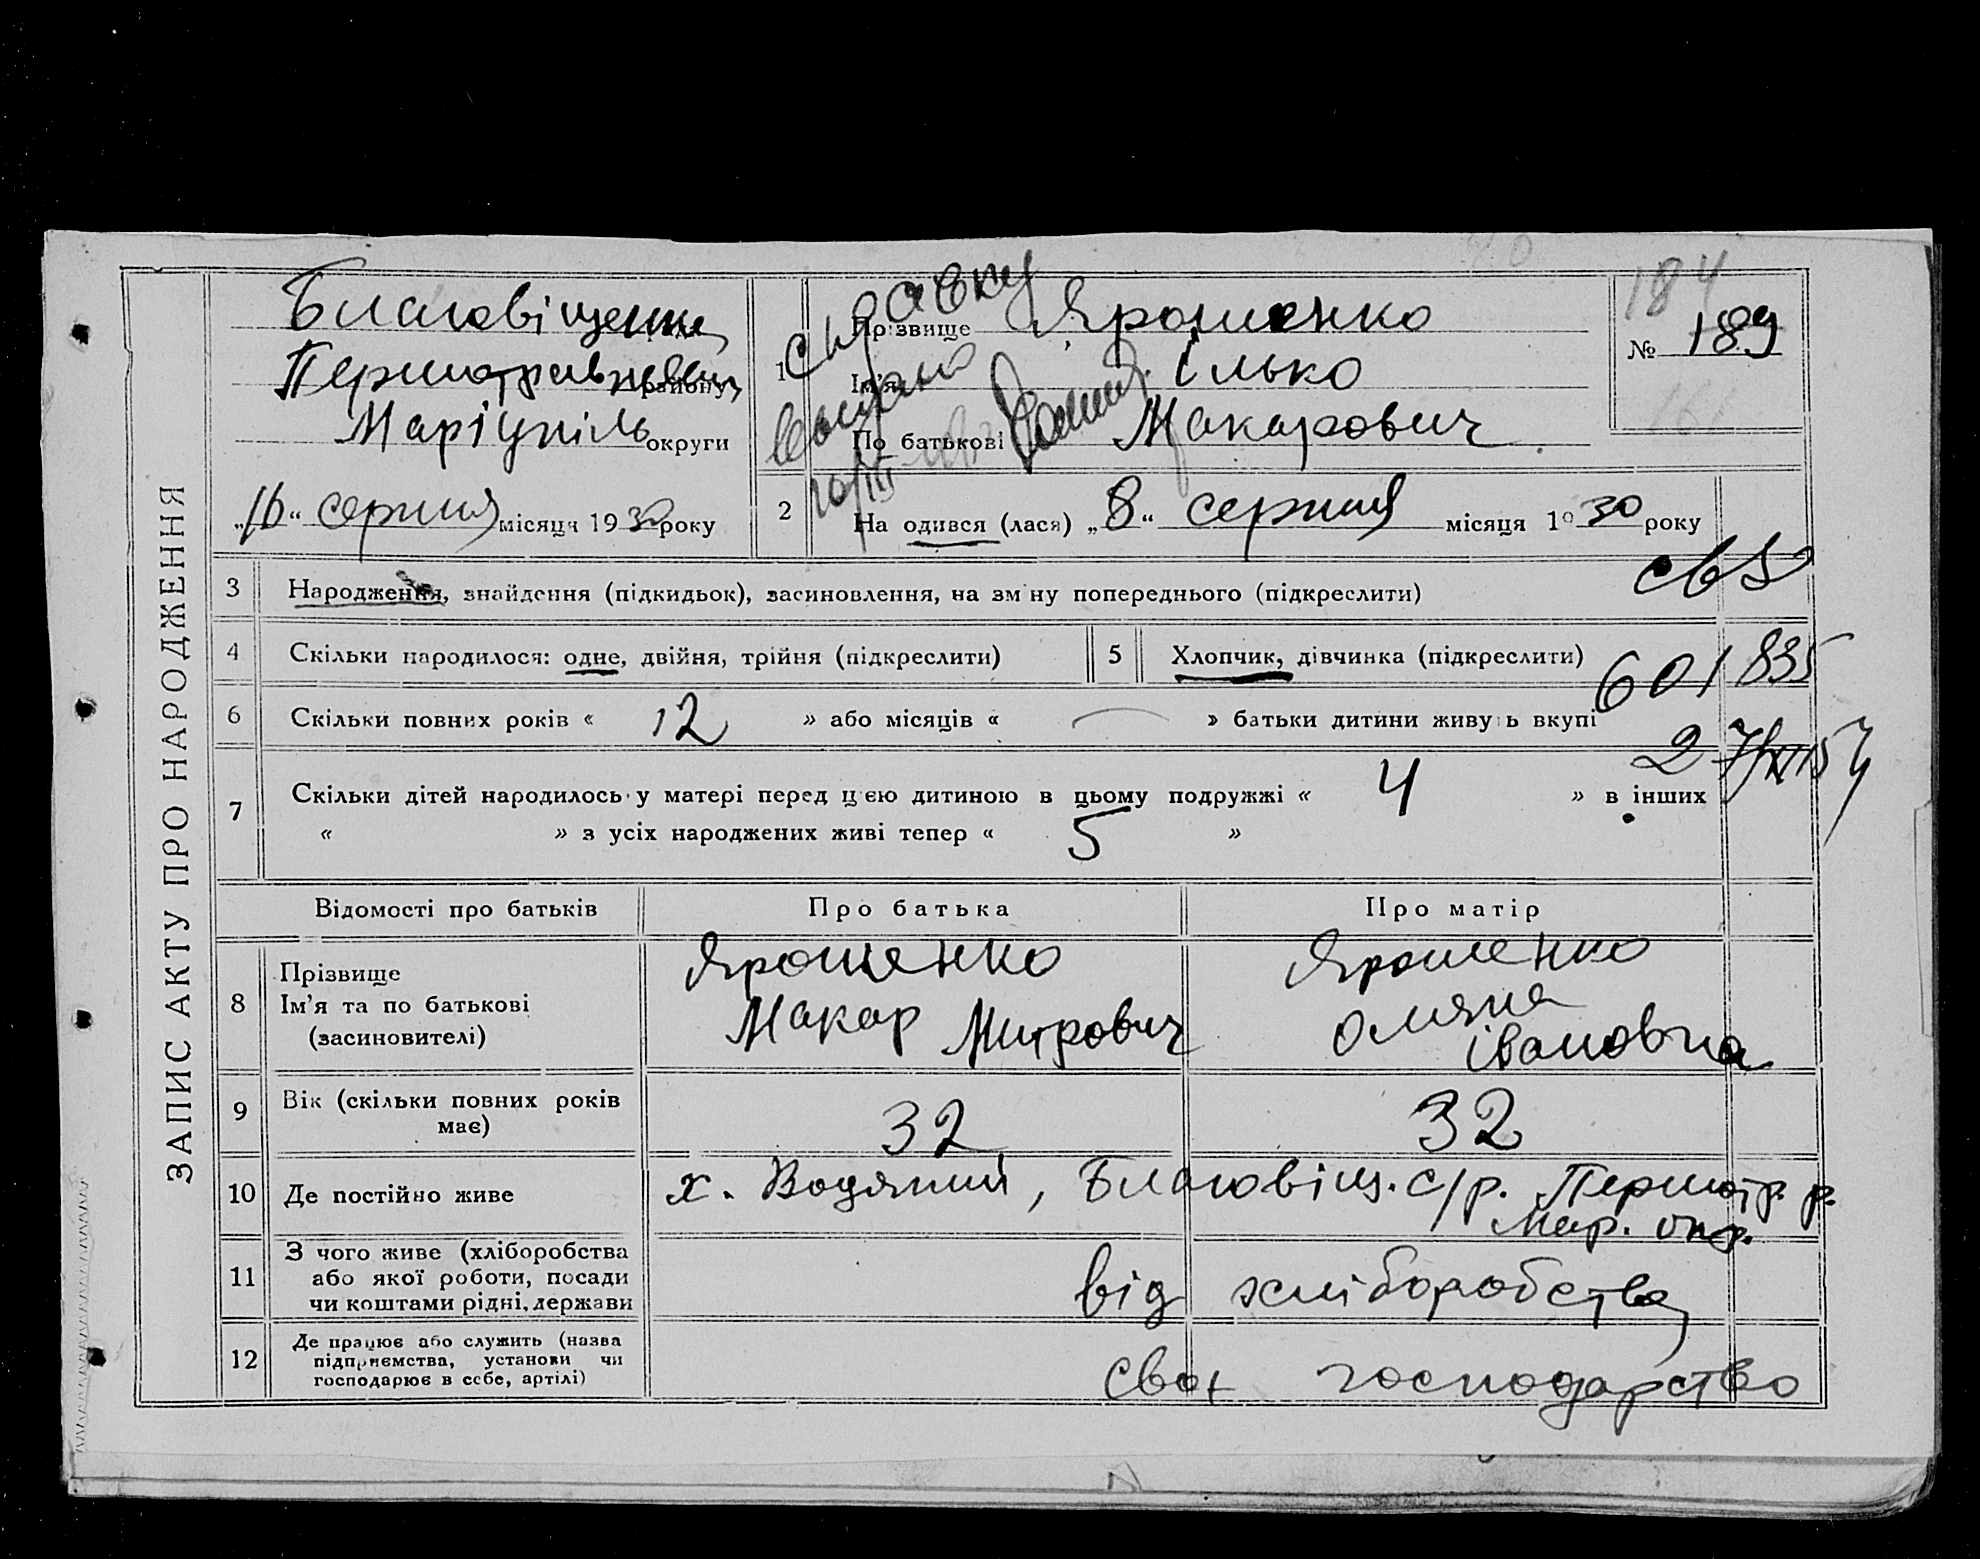 ЗАПИС АКТУ ПРО НАРОДЖЕННЯ
Благовіщенка
Першотравневий району
Маріупіль округи
„16“ серпня місяця 1930 року
справку
1 Прізвище Ярошенко
Ім'я Ілько
По батькові Макарович
№ 189
184
161
2 На одився (лася) „8“ серпня місяця 19 30 року
3 Народження, знайдення (підкидьок), засиновлення, на зм ну попереднього (підкреслити)
св
4 Скільки народилося: одне, двійня, трійня (підкреслити) 5 Хлопчик, дівчинка (підкреслити)
601 835
6 Скільки повних років « 12 » або місяців « — » батьки дитини живу ь вкупі
7 Скільки дітей народилось у матері перед цією дитиною в цьому подружжі « 4 » в інших
« » з усіх народжених живі тепер « 5 »
Відомості про батьків Про батька Про матір
8 Прізвище
Ім'я та по батькові
(засиновителі)
Ярошенко
Макар Митрович
Ярошенко
Оляна
Івановна
9 Вік (скільки повних років
має)
32 32
10 Де постійно живе х. Водяний, Благовіщ. с/р. Першотр. р.
Мар. окр.
11 З чого живе (хліборобства
або якої роботи, посади
чи коштами рідні, держави
від хліборобства
12 Де працює або служить (назва
підприємства, установи чи
господарює в себе, артілі)
своє господарство